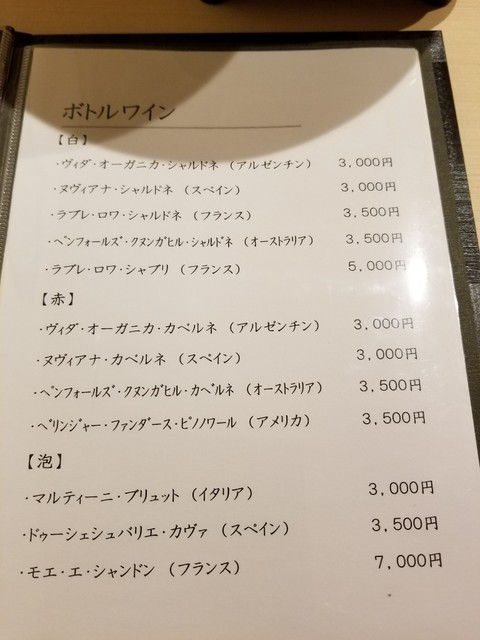 ボトルワイン
【白】
・ヴィダ・オーガニカ・シャルドネ （アルゼンチン） 3,000円
・ヌヴィアナ・シャルドネ （スペイン） 3,000円
・ラブレ・ロワ・シャルドネ （フランス） 3,500円
・ペンフォールズ・クヌンガヒル・シャルドネ （オーストラリア） 3,500円
・ラブレ・ロワ・シャブリ （フランス） 5,000円
【赤】
・ヴィダ・オーガニカ・カベルネ （アルゼンチン） 3,000円
・ヌヴィアナ・カベルネ （スペイン） 3,000円
・ペンフォールズ・クヌンガヒル・カベルネ （オーストラリア） 3,500円
・ベリンジャー・ファンダース・ピノノワール （アメリカ） 3,500円
【泡】
・マルティーニ・ブリュット （イタリア） 3,000円
・ドゥーシェシュバリエ・カヴァ （スペイン） 3,500円
・モエ・エ・シャンドン （フランス） 7,000円